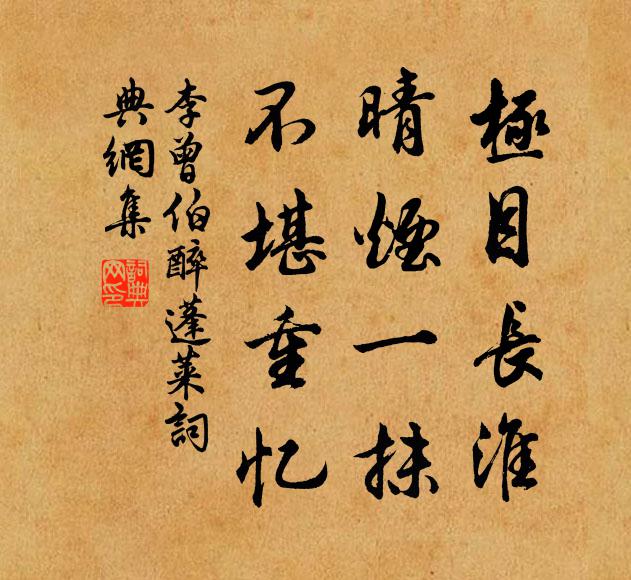 極目長淮
晴煙一抹
不堪重忆
李曾伯醉蓬萊詞
典網集
詞典網印